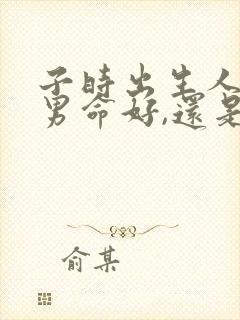 子时出生人
男命好,還是
俞某